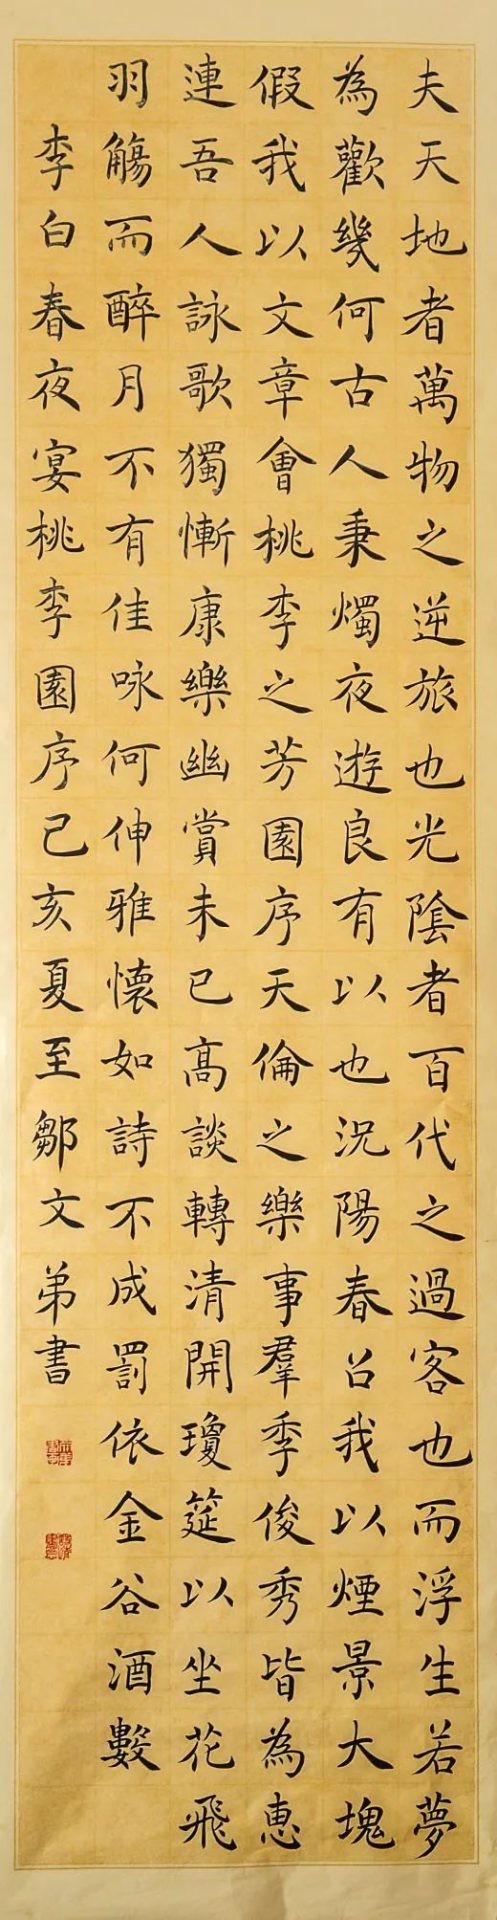 夫天地者萬物之逆旅也光陰者百代之過客也而浮生若夢
為歡幾何古人秉燭夜遊良有以也況陽春召我以煙景大塊
假我以文章會桃李之芳園序天倫之樂事羣季俊秀皆為惠
連吾人詠歌獨慚康樂幽賞未已高談轉清開瓊筵以坐花飛
羽觴而醉月不有佳咏何伸雅懷如詩不成罰依金谷酒數
李白春夜宴桃李園序己亥夏至鄒文弟書